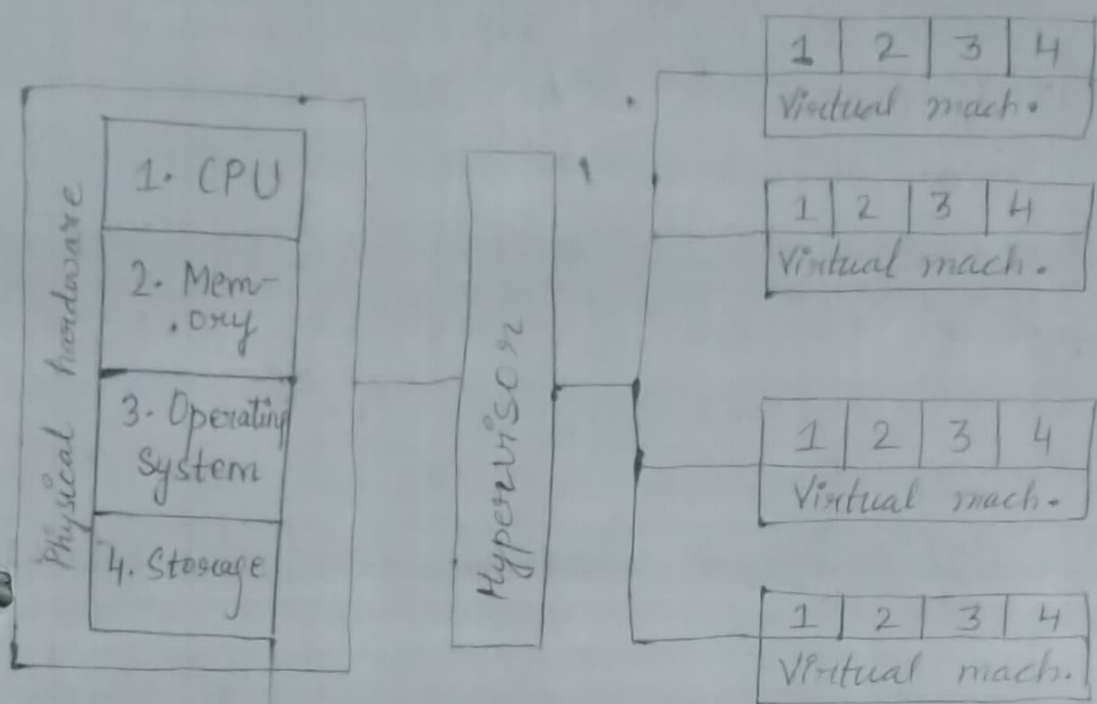 Physical hardware
1. CPU
2. Mem-
ory
3. Operating
System
4. Storage
Hypervisor
1 2 3 4
Virtual mach.
1 2 3 4
Virtual mach.
1 2 3 4
Virtual mach.
1 2 3 4
Virtual mach.